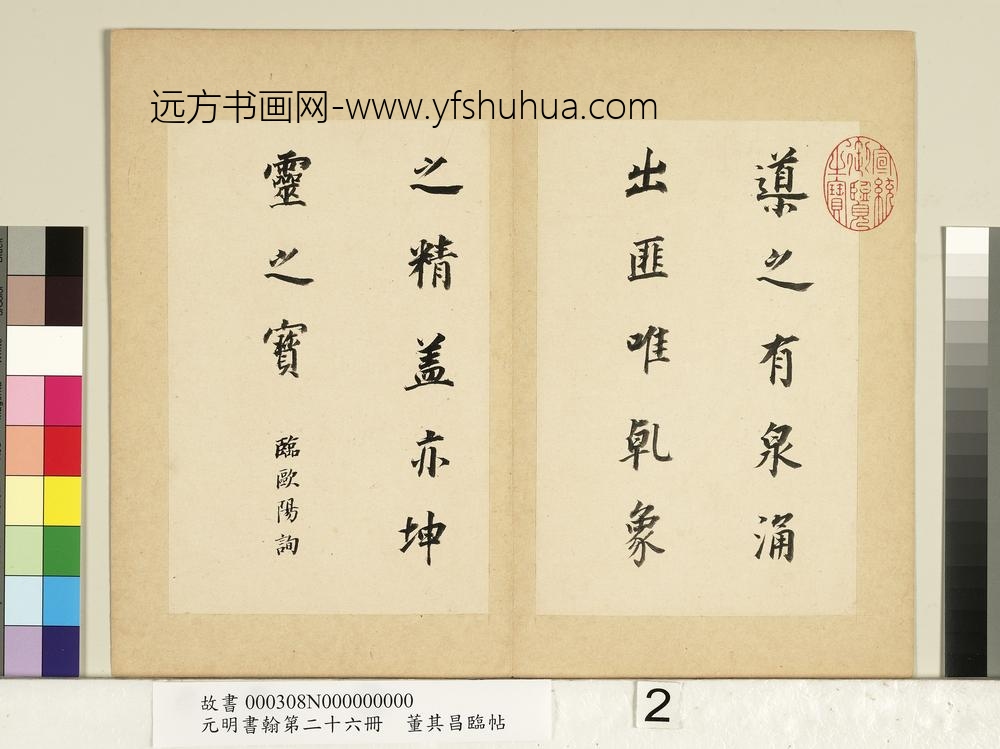 远方书画网-www.yfshuhua.com
宣統
御覽
之寶
導之有泉涌
出匪唯乹象
之精盖亦坤
靈之寶
臨歐陽詢
故書 000308N000000000
元明書翰第二十六冊 董其昌臨帖
2